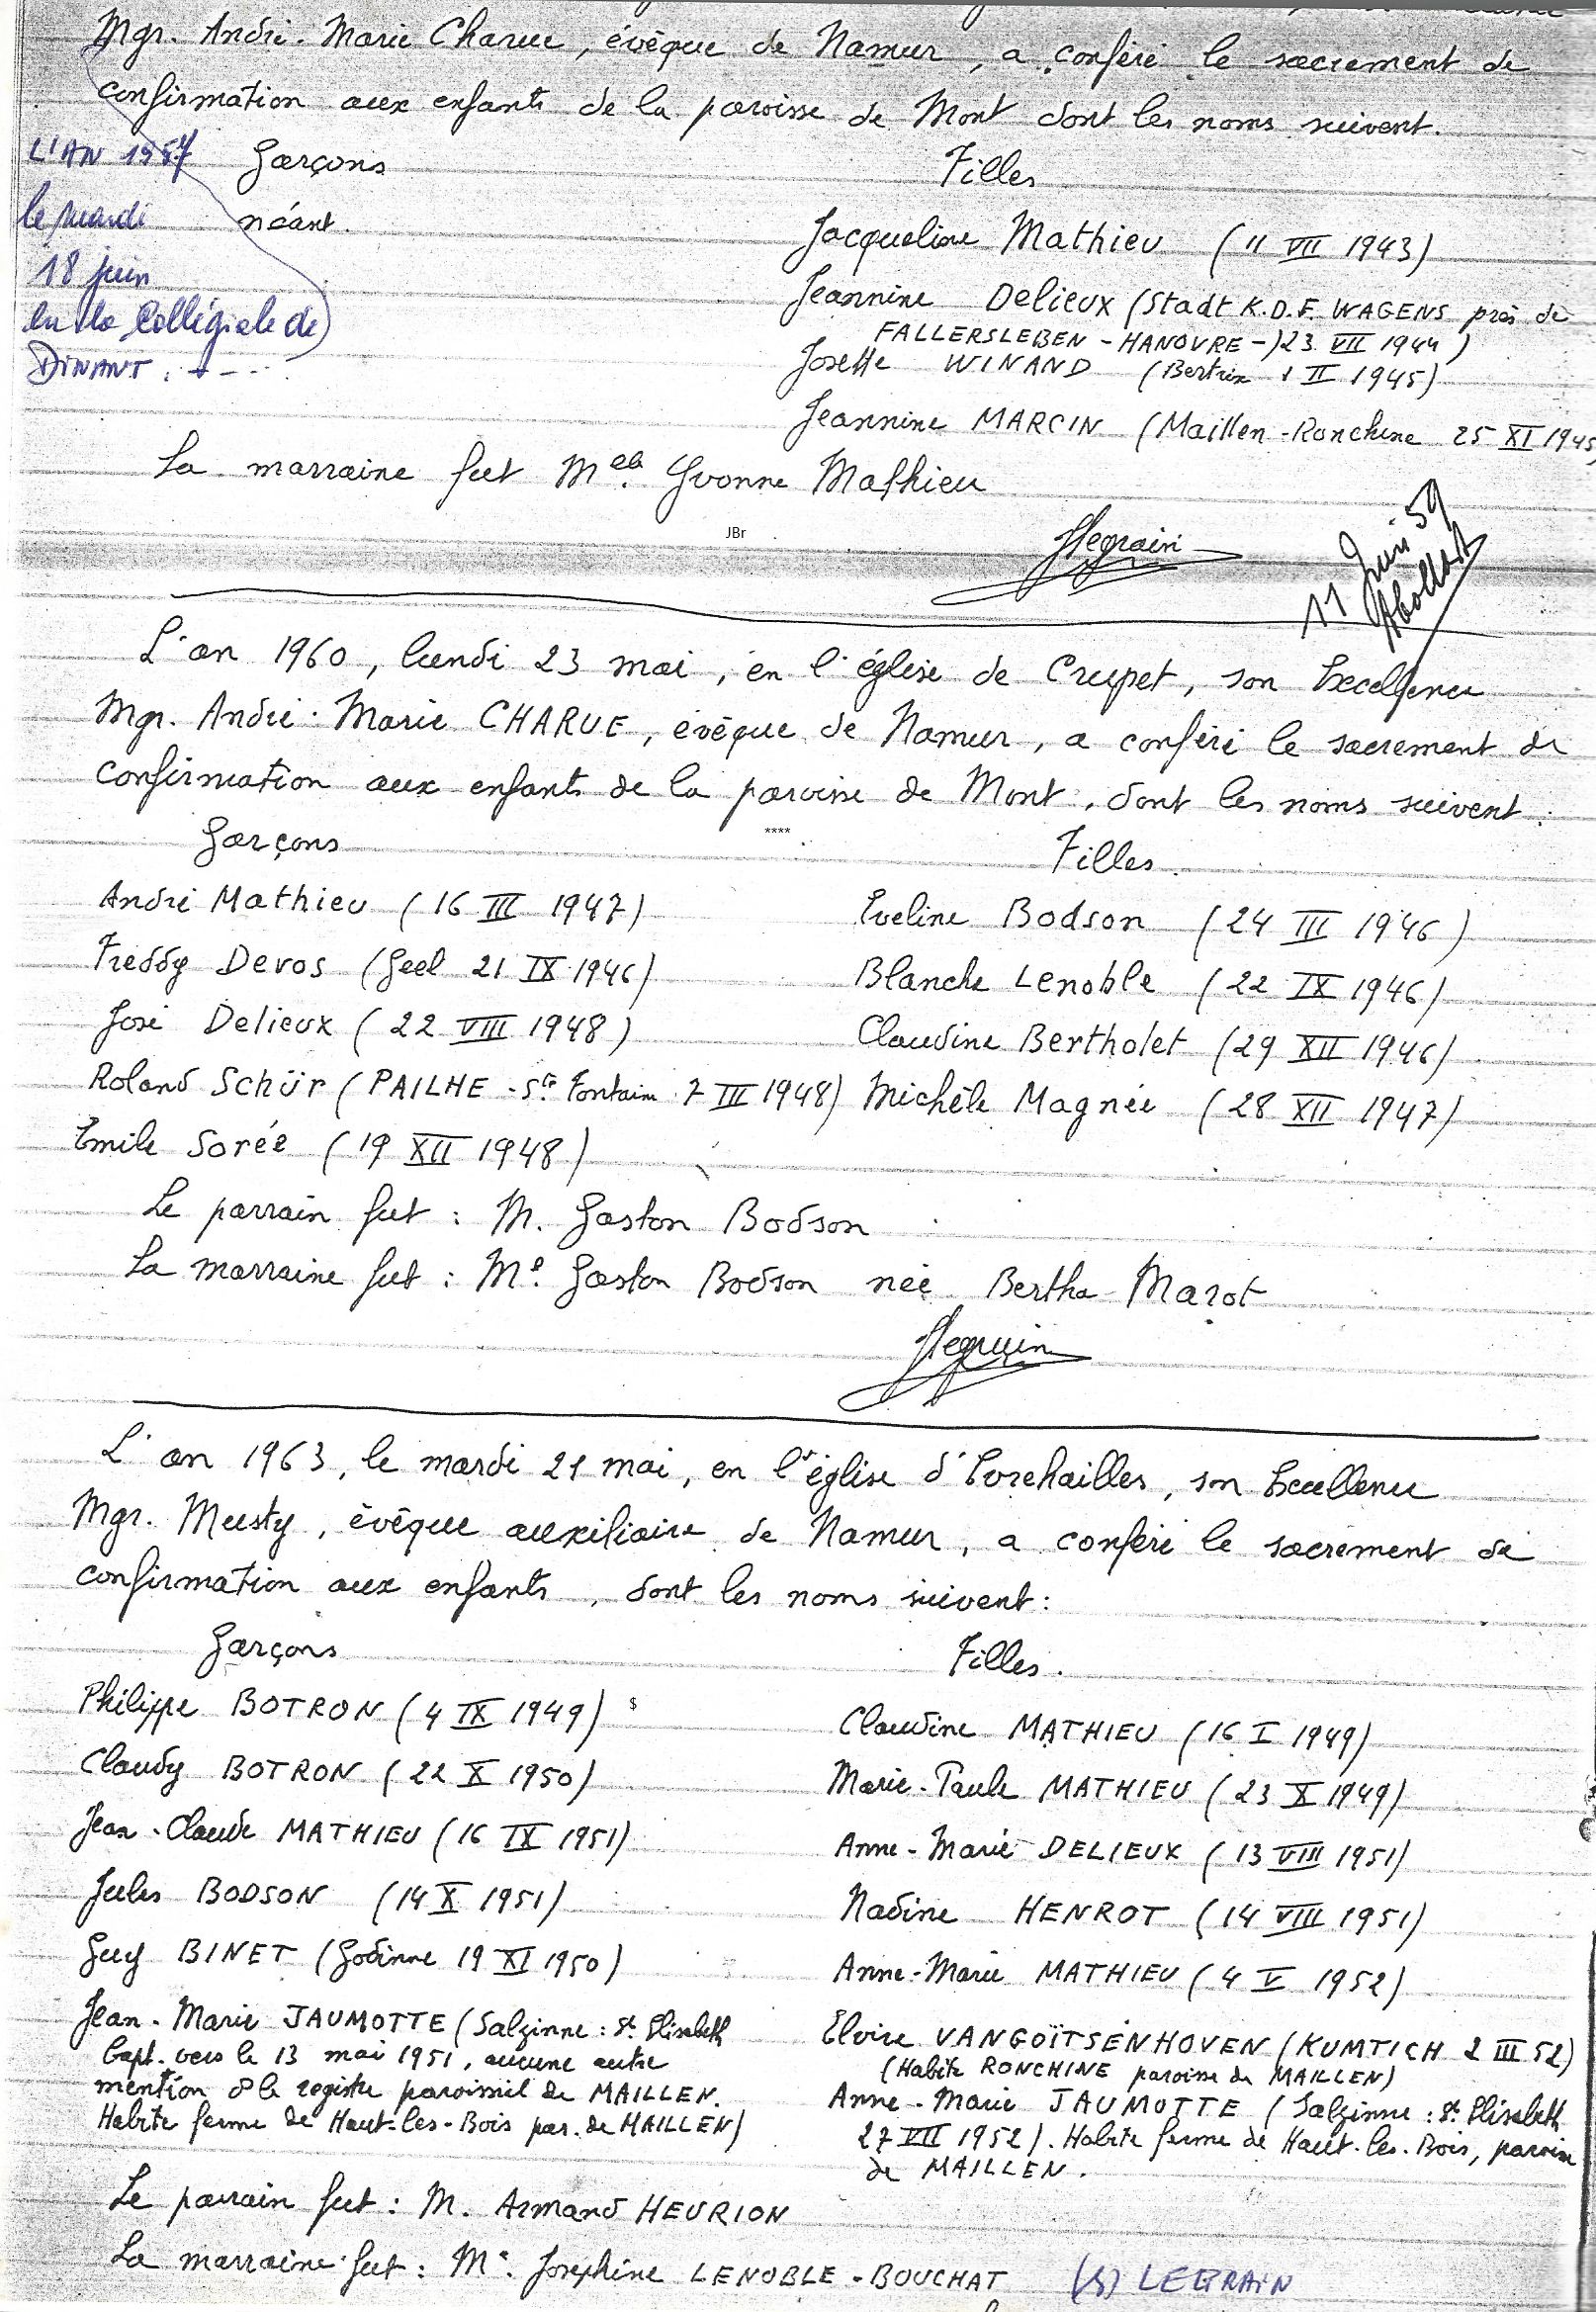 Mgr. André-Marie Charue, évêque de Namur, a conféré le sacrement de
confirmation aux enfants de la paroisse de Mont dont les noms suivent.
L'AN 1957
le mardi
18 juin
en la Collégiale de
DINANT.
Garçons
néant.
Filles
Jacqueline Mathieu (11 VII 1943)
Jeannine Delieux (Stadt K.D.F. WAGENS près de
FALLERSLEBEN - HANOVRE -) 23 VII 1944)
Josette WINAND (Bertrix 1 II 1945)
Jeannine MARCIN (Maillen-Ronchine 25 XI 1945)
La marraine fut Melle. Yvonne Mathieu
JBr
11 Juin 59
L'an 1960, lundi 23 mai, en l'église de Crupet, son Excellence
Mgr. André-Marie CHARUE, évêque de Namur, a conféré le sacrement de
confirmation aux enfants de la paroisse de Mont, dont les noms suivent.
****
Garçons
André Mathieu (16 III 1947)
Freddy Devos (Geel 21 IX 1946)
José Delieux (22 VIII 1948)
Roland Schür (PAILHE - Ste Fontaine 7 III 1948)
Emile Sorée (19 XII 1948)
Filles.
Eveline Bodson (24 III 1946)
Blanche Lenoble (22 IX 1946)
Claudine Bertholet (29 XII 1946)
Michèle Magnée (28 XII 1947)
Le parrain fut : M. Gaston Bodson
La marraine fut : Me. Gaston Bodson née Bertha Marot
L'an 1963, le mardi 21 mai, en l'église d'Evrehailles, son Excellence
Mgr. Musty, évêque auxiliaire de Namur, a conféré le sacrement de
confirmation aux enfants, dont les noms suivent :
Garçons
Philippe BOTRON (4 IX 1949) $
Claudy BOTRON (22 X 1950)
Jean-Claude MATHIEU (16 IX 1951)
Jules BODSON (14 X 1951)
Guy BINET (Godinne 19 XI 1950)
Jean-Marie JAUMOTTE (Salzinne : St. Elisabeth
bapt. vers le 13 mai 1951, aucune autre
mention ds le registre paroissial de MAILLEN.
Habite ferme de Haut-les-Bois par. de MAILLEN)
Filles.
Claudine MATHIEU (16 I 1949)
Marie-Paule MATHIEU (23 X 1949)
Anne-Marie DELIEUX (13 VIII 1951)
Nadine HENROT (14 VIII 1951)
Anne-Marie MATHIEU (4 V 1952)
Elvire VANGOÏTSENHOVEN (KUMTICH 2 III 52)
(Habite RONCHINE paroisse de MAILLEN)
Anne-Marie JAUMOTTE (Salzinne : St. Elisabeth
27 VII 1952). Habite ferme de Haut-les-Bois, paroisse
de MAILLEN.
Le parrain fut : M. Armand HEURION
La marraine fut : Me. Joséphine LENOBLE-BOUCHAT
(s) LEGRAIN